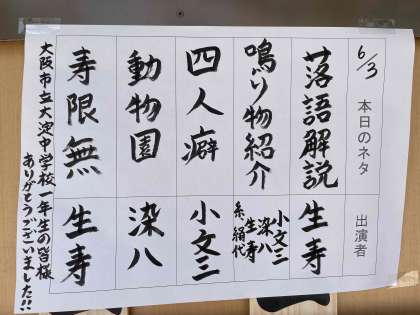 6/3
本日のネタ
出演者
落語解説
生寿
鳴り物紹介
小文三
染八
生寿
糸絹代
四人癖
小文三
動物園
染八
寿限無
生寿
大阪市立大淀中学校一年生の皆様
ありがとうございました!!